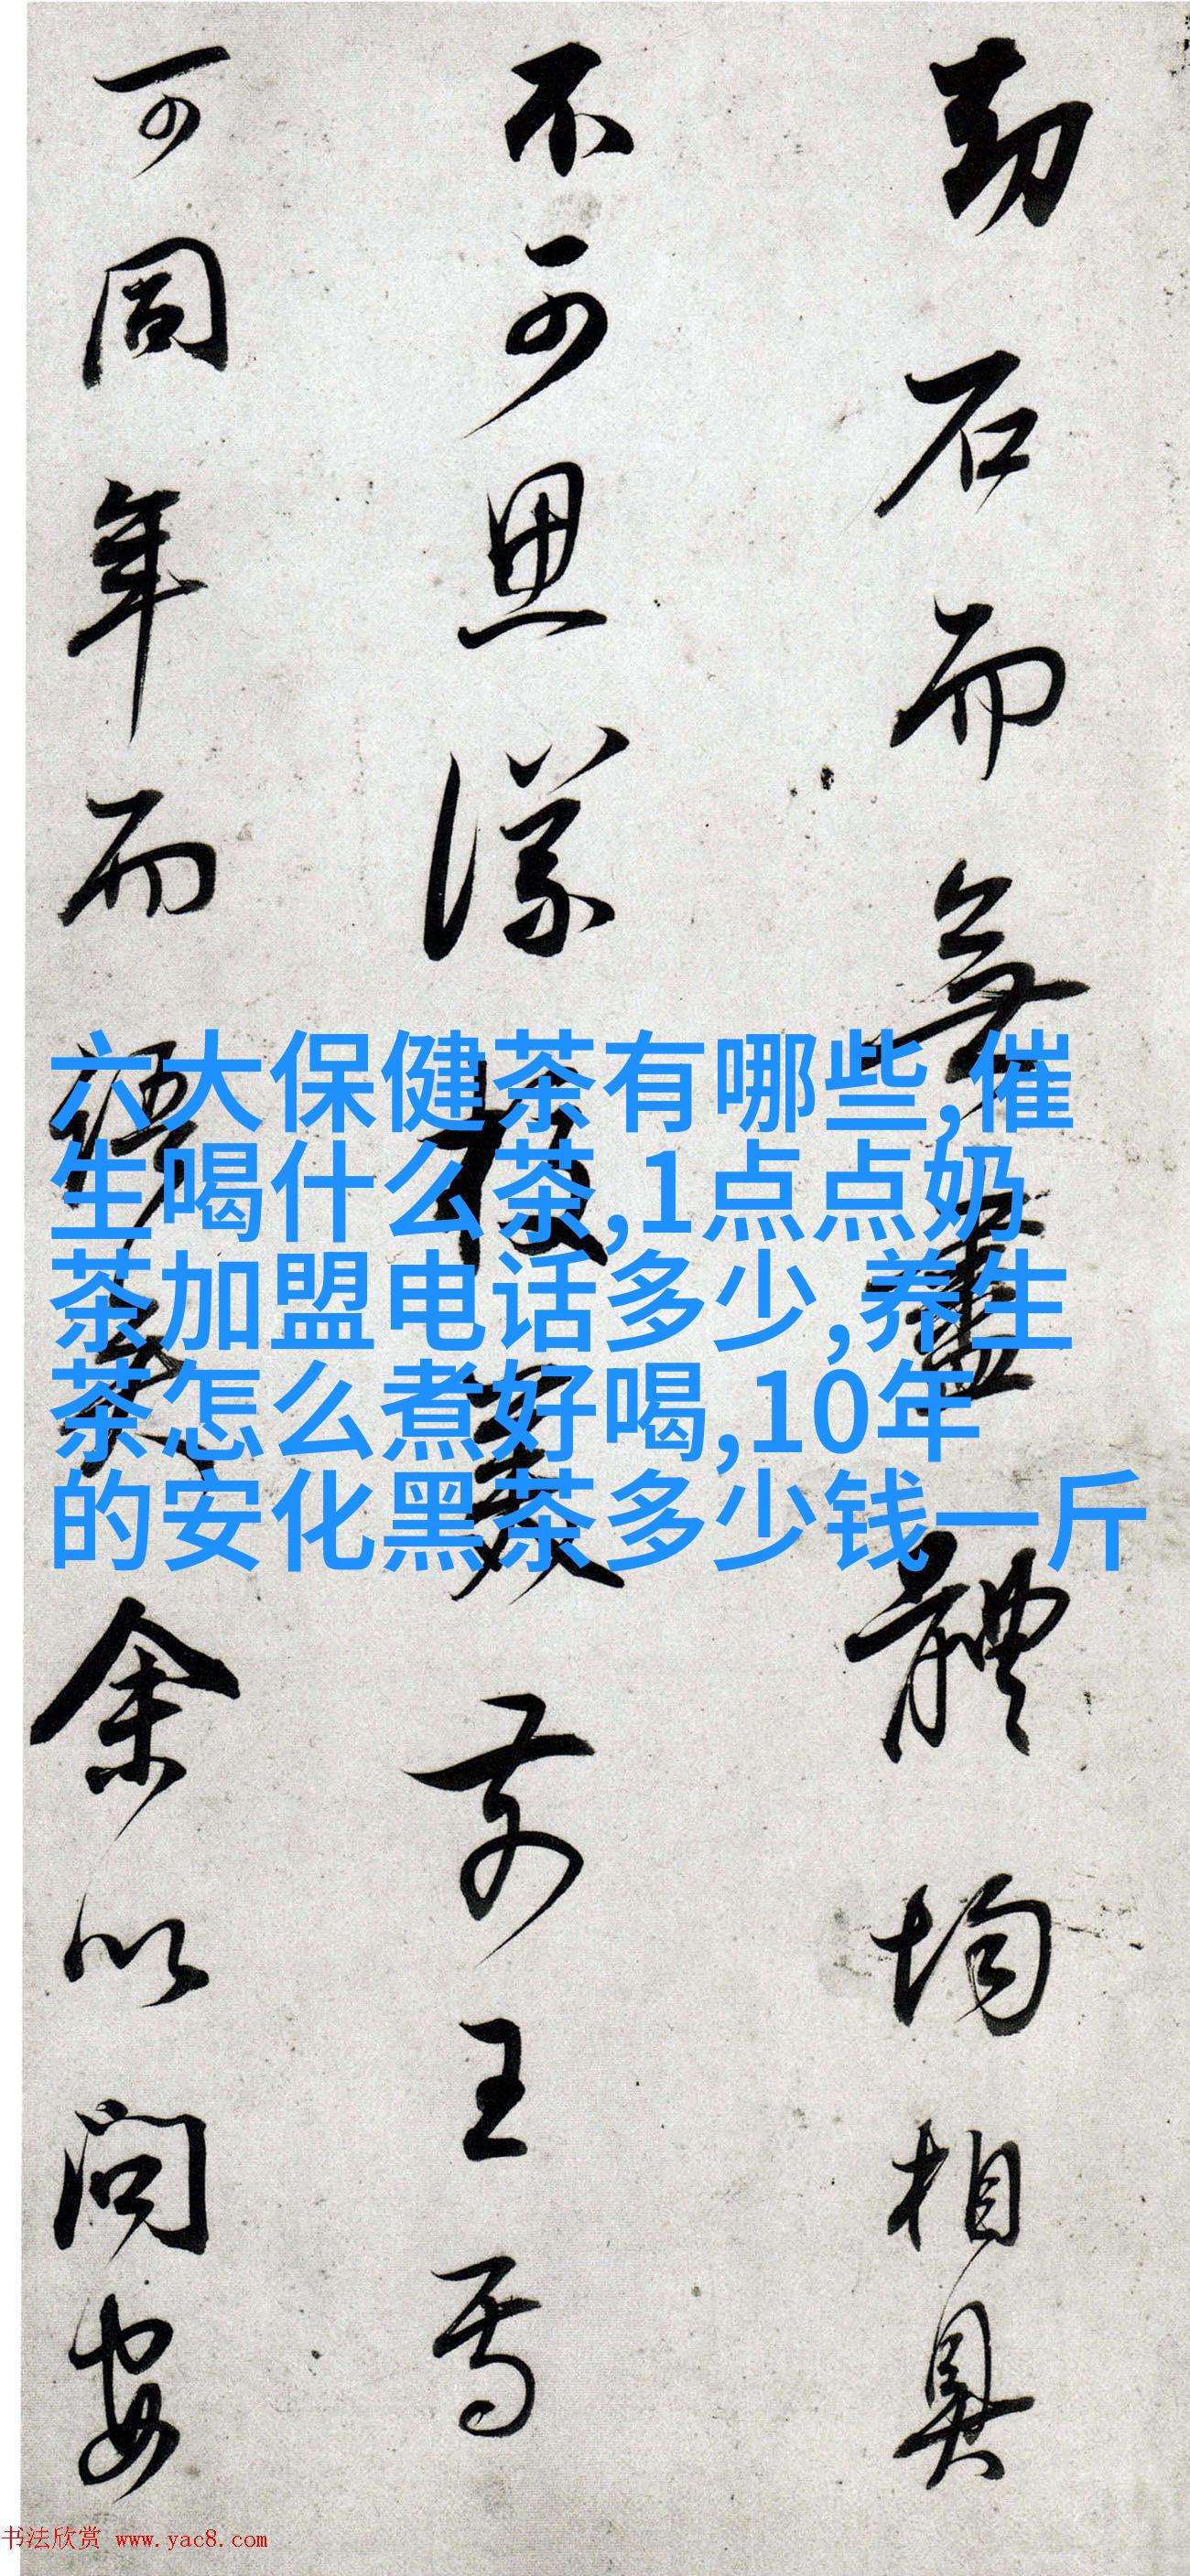 劫石而無盡體均相具
不可思議校美前王焉
可同年而語矣余以問安
六大保健茶有哪些,催
生喝什么茶,1点点奶
茶加盟电话多少,养生
茶怎么煮好喝,10年
的安化黑茶多少钱一斤
书法欣赏 www.yac8.com